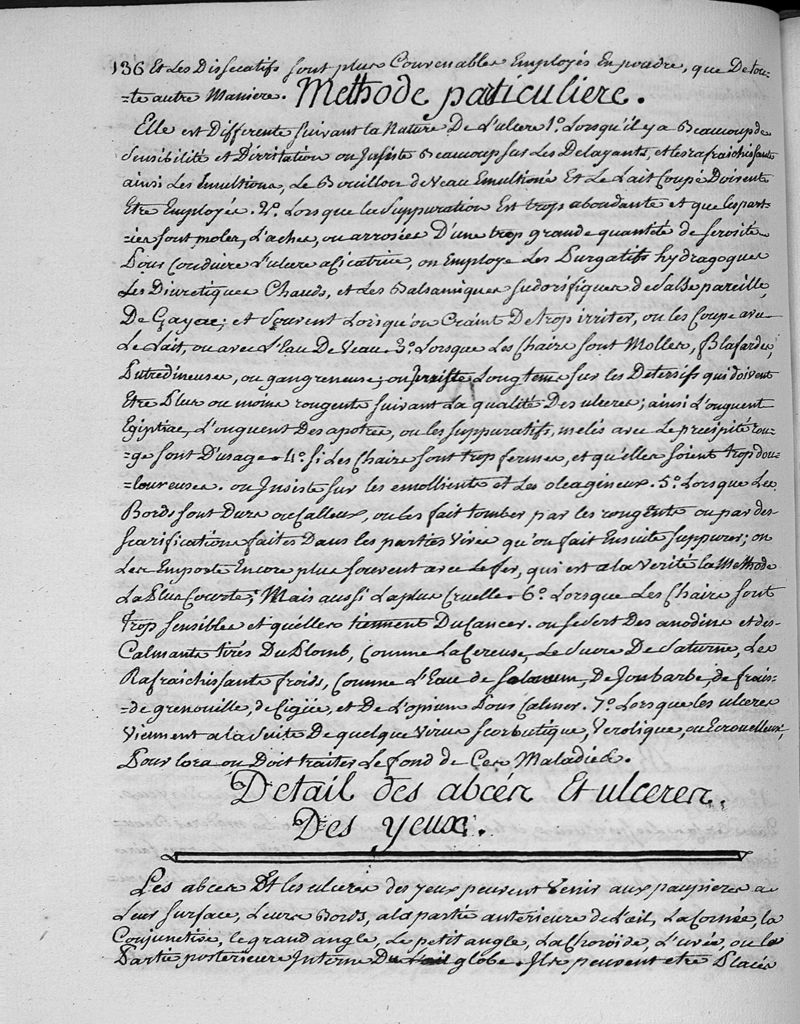 136 Et Les Dissicatifs sont plus Convenables Employés En poudre, que De tou-
-te autre Maniere. Methode paticuliere.
Elle est Differente suivant la Nature De L'ulcere 1.° Lorsqu'il y a Beaucoup de
sensibilité et D'irritation on Insiste Beaucoup sur Les Delayants, et les rafraichissants
ainsi Les Emultions, Le Bouillon de Veau Emultioné Et Le Lait Coupé Doivent
Etre Employés. 2.° Lorsque la Suppuration Est trop abondante et que les part-
-ies sont moles, Laches, ou arrosées D'une trop grande quantité de serosité
Pour Conduire L'ulcere a Cicatrice, on Employe Les Purgatifs hydragogues
Les Diuretiques Chauds, et Les Balsamiques sudorifiques de Salse pareille,
De Gayac; et souvent Lorsqu'on Craint De trop irriter, on les Coupe avec
Le Lait, ou avec L'Eau De Veau. 3.° Lorsque Les Chairs sont Molles, Blafardes,
Putredineuses, ou gangreneuse; on Insiste Longtems sur les Detersifs qui doivent
Etre Plus ou moins rongents suivant La qualité Des ulceres; ainsi L'onguent
Egiptiac, L'onguent Des apotres, ou les suppuratifs, melés avec Le precipité rou-
-ge sont D'usage. 4.° si Les Chairs sont trop fermes, et qu'elles soient trop dou-
-loureuses. on Insiste sur les emollients et Les oleagineux. 5.° Lorsque Les
Bords sont Durs ou Calleux, on les fait tomber par les rongents ou par des
scarifications faites Dans les parties Vives qu'on fait Ensuite suppurer; on
Les Emporte Encore plus souvent avec Le fer, qui est a la Verité la Methode
La Plus Courte; Mais aussi La plus Cruelle. 6.° Lorsque Les Chairs sont
trop sensibles et qu'elles tiennent Du Cancer. on se sert Des anodins et des
Calmants tirés Du Plomb, Comme La Ceruse, Le Sucre De Saturne, Les
Rafraichissants froids, Comme L'Eau de Solanum, De Joubarbe, de frais-
-de grenouille, de Ciguë, et De L'opium Pour Calmer. 7.° Lorsque les ulceres
Viennent a la Suite De quelque Virus scorbutique, Verolique, ou Ecrouelleux,
Pour lors on Doit traiter Le fond de Ces Maladies.
Detail des abcés Et ulceres
Des yeux.
Les abces Et les ulceres des yeux peuvent Venir aux paupieres a
Leur surface, Leurs Bords, a la partie antérieure de L'œil, La Cornée, la
Conjunctive, le grand angle, Le petit angle, La Choroïde, L'uvée, ou la
Partie posterieure Interne Du globe. Ils peuvent etre Placés